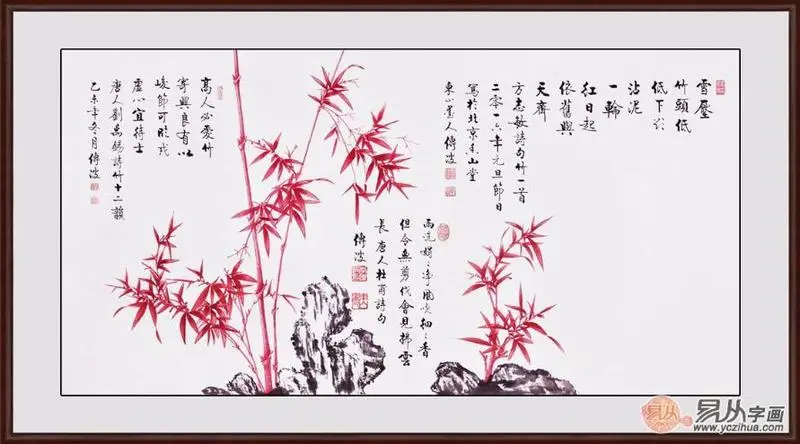 雪壓
竹頭低
低下欲
沾泥
一輪
紅日起
依舊與
天齊
方志敏詩句竹一首
二零一六年元旦節日
寫於北京香山堂
雨洗娟〻淨風吹細〻香
但令無剪伐會見拂雲
長唐人杜甫詩句
傅波
高人必愛竹
寄興良有以
峻節可臨戎
虛心宜待士
唐人劉禹錫詩竹十二韻
乙未年冬月傅波
易从字画
www.yczihua.com